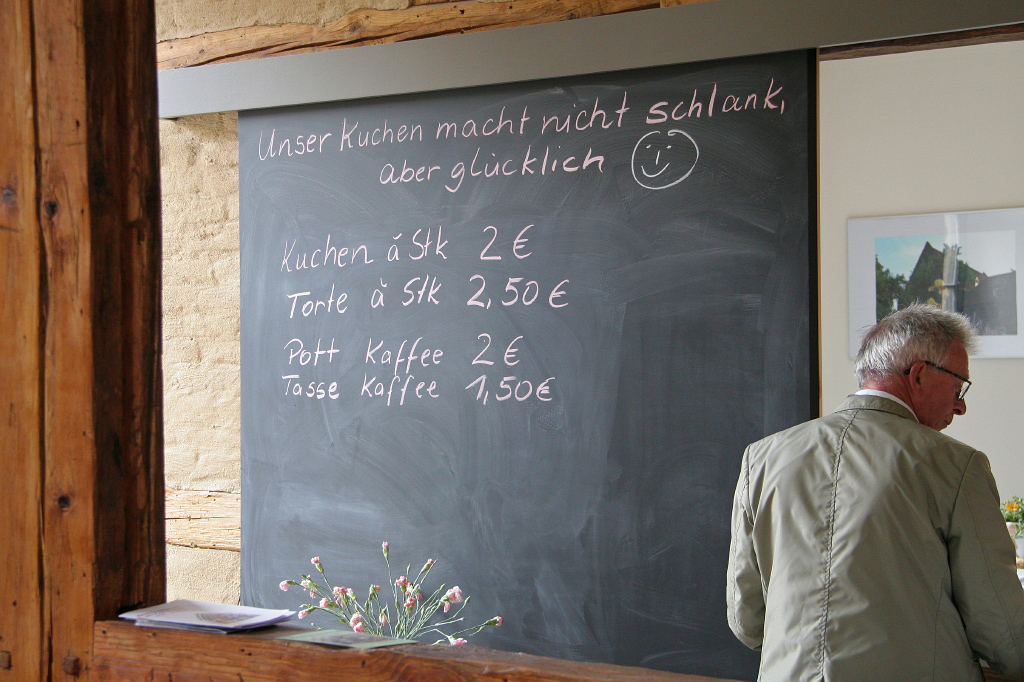 Unser Kuchen macht nicht schlank,
aber glücklich
Kuchen à Stk 2 €
Torte à Stk 2,50 €
Pott Kaffee 2 €
Tasse Kaffee 1,50 €